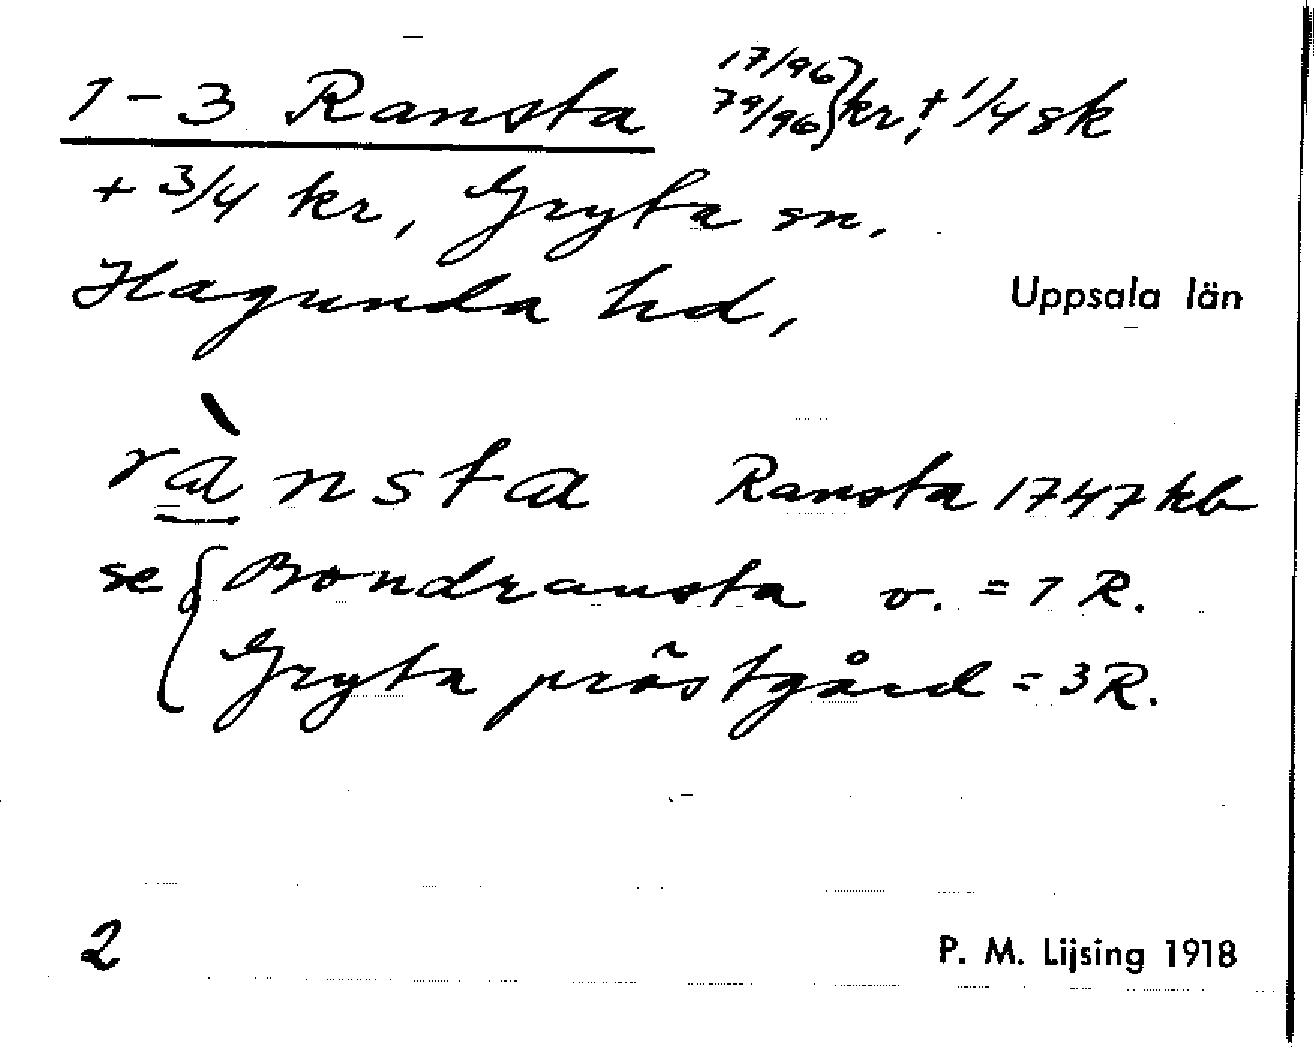 1-3 Ransta 17/96 79/96 } kr. + 1/4 sk
+ 3/4 kr, Gryta sn.
Hagunda hd, Uppsala län
rànsta Ransta 1747 kb
se { Bondransta v. = 1 R.
Gryta prästgård = 3 R.
2 P. M. Lijsing 1918